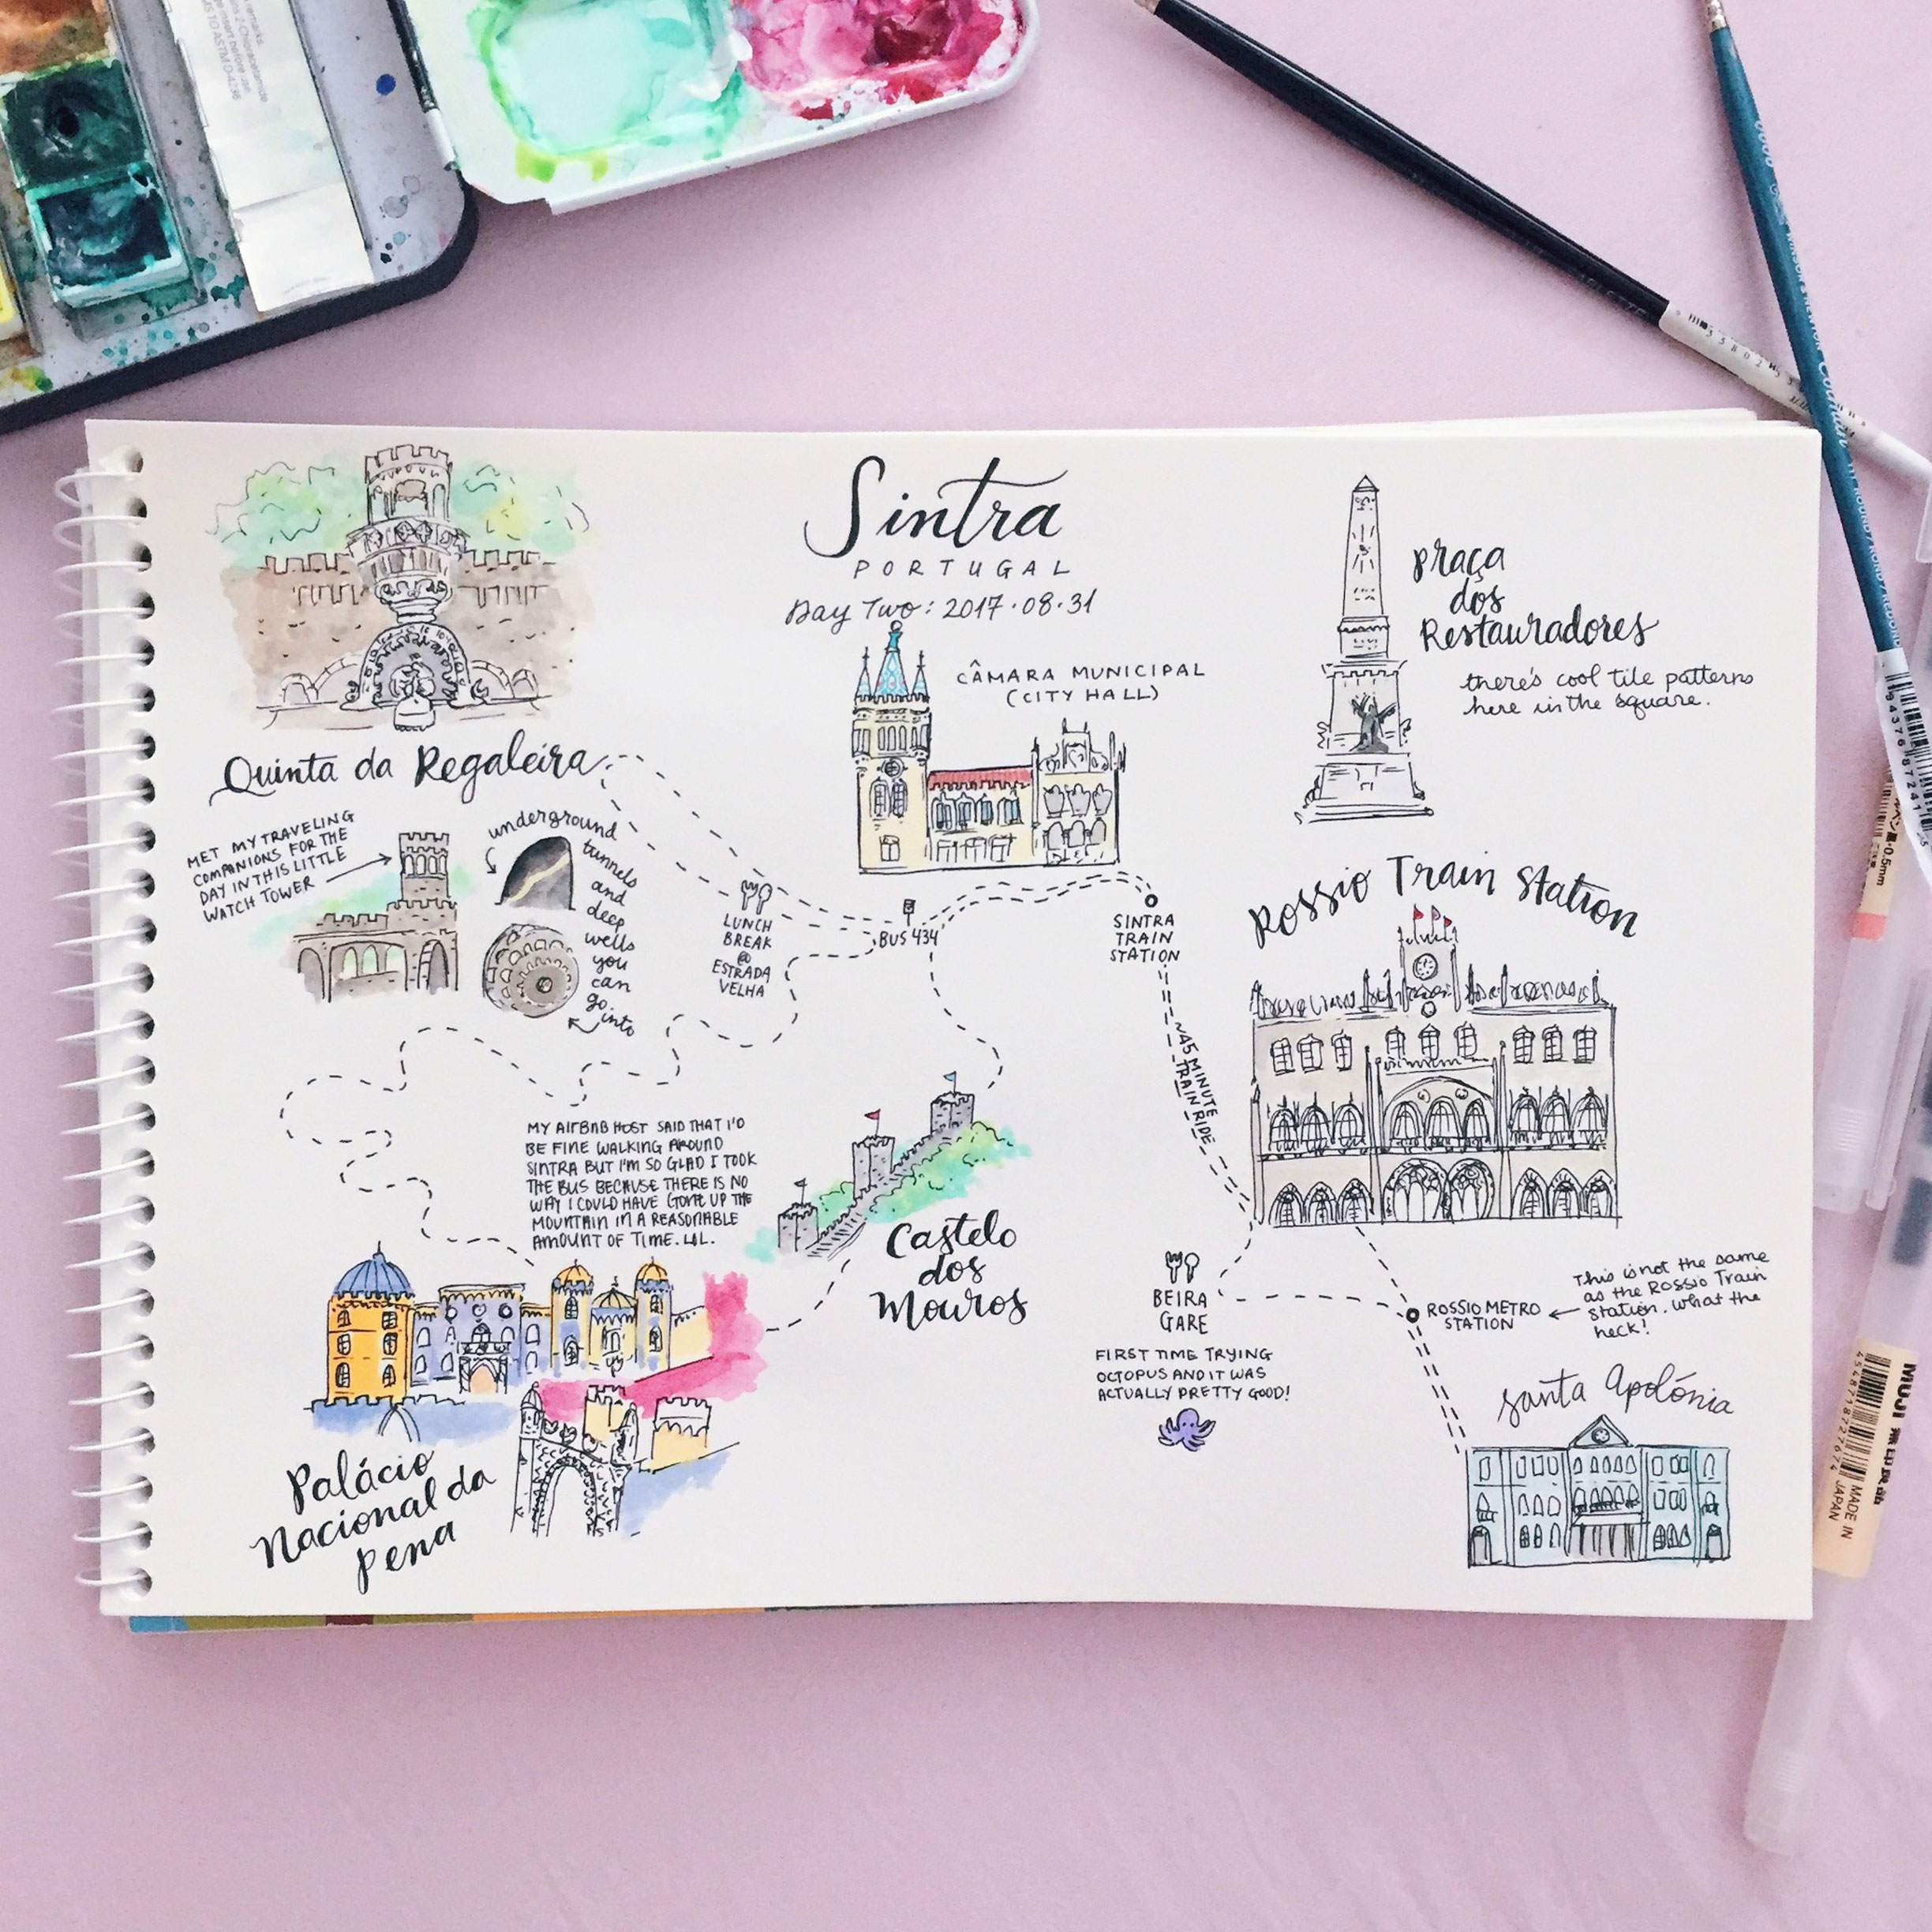 Sintra
PORTUGAL
Day Two: 2017.08.31
CÂMARA MUNICIPAL
(CITY HALL)
Quinta da Regaleira
MET MY TRAVELING
COMPANIONS FOR THE
DAY IN THIS LITTLE
WATCH TOWER
underground
tunnels
and
deep
wells
you
can
go
into
LUNCH
BREAK
@
ESTRADA
VELHA
BUS 434
SINTRA
TRAIN
STATION
~45 MINUTE
TRAIN RIDE
Praça
dos
Restauradores
there's cool tile patterns
here in the square.
Rossio Train Station
MY AIRBNB HOST SAID THAT I'D
BE FINE WALKING AROUND
SINTRA BUT I'M SO GLAD I TOOK
THE BUS BECAUSE THERE IS NO
WAY I COULD HAVE GONE UP THE
MOUNTAIN IN A REASONABLE
AMOUNT OF TIME. LOL.
Castelo
dos
Mouros
Palácio
Nacional da
Pena
BEIRA
GARE
FIRST TIME TRYING
OCTOPUS AND IT WAS
ACTUALLY PRETTY GOOD!
ROSSIO METRO
STATION
This is not the same
as the Rossio Train
Station. What the
heck!
Santa Apolónia
TO ASTM D-4236
WINSOR & NEWTON Cotman
ROUND
0.5mm
MUJI 無印良品
MADE IN
JAPAN
4548718727674